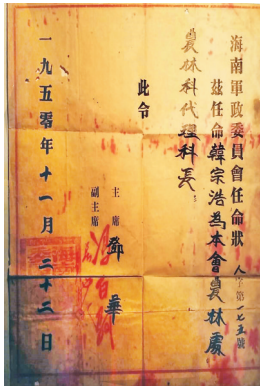 海南軍政委員會任命狀
人字第一七五號
茲任命韓宗浩為本會農林處
農林科代理科長
此令
主席 鄧華
副主席
一九五零年十一月二十二日